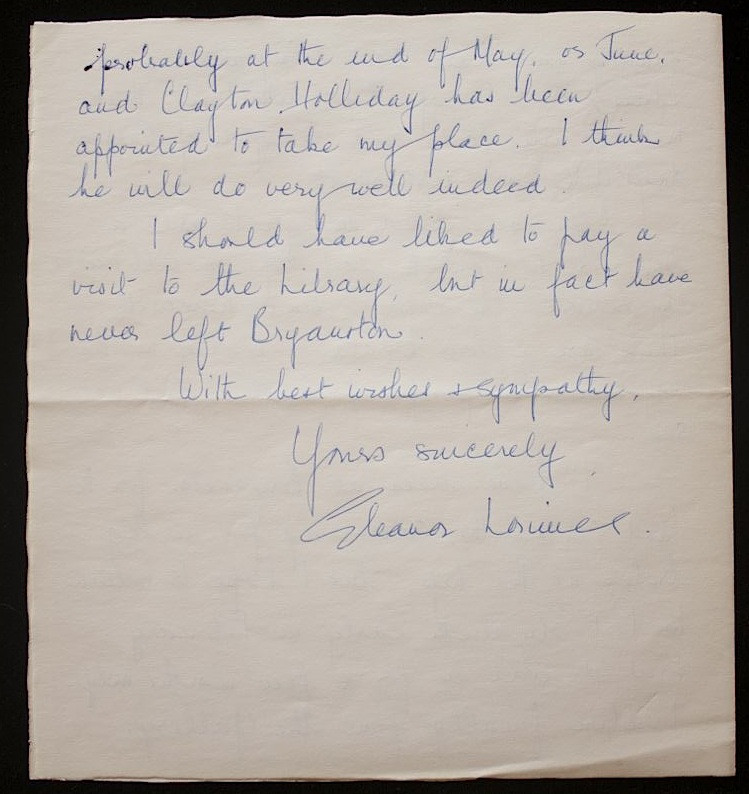 probably at the end of May, or June,
and Clayton Holliday has been
appointed to take my place. I think
he will do very well indeed.
I should have liked to pay a
visit to the Library, but in fact have
never left Bryanston.
With best wishes & sympathy,
Yours sincerely,
Eleanor Lorimer.